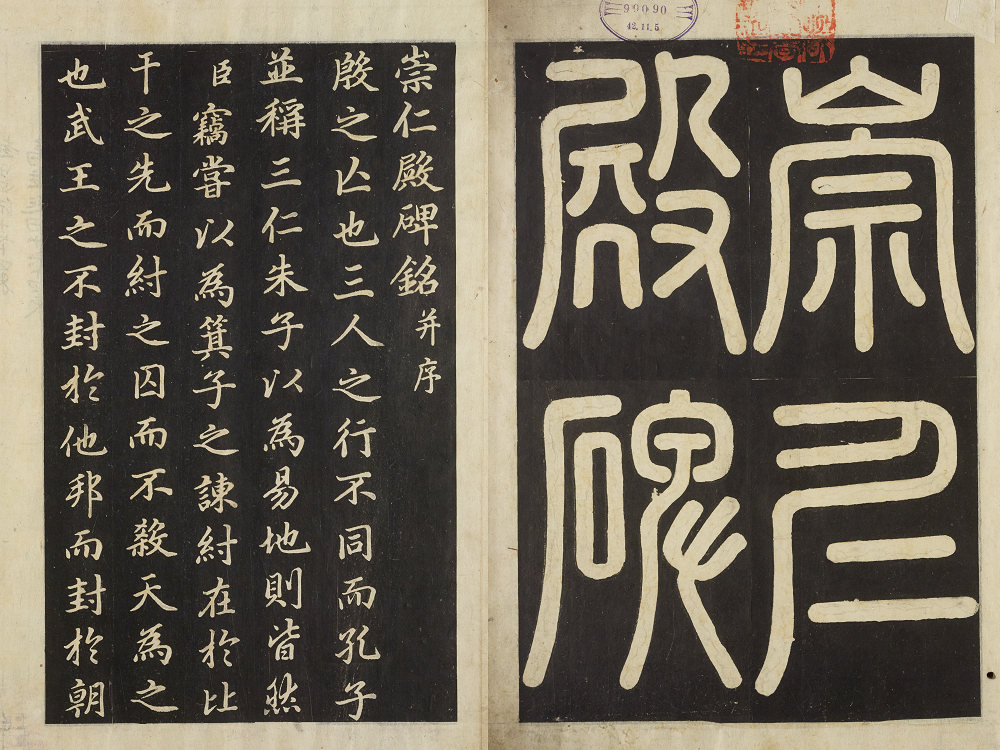 崇仁
殿碑
崇仁殿碑銘并序
殷之亾也三人之行不同而孔子
並稱三仁朱子以為易地則皆然
臣竊嘗以為箕子之諫紂在於比
干之先而紂之囚而不殺天為之
也武王之不封於他邦而封於朝
99090
42.11.5